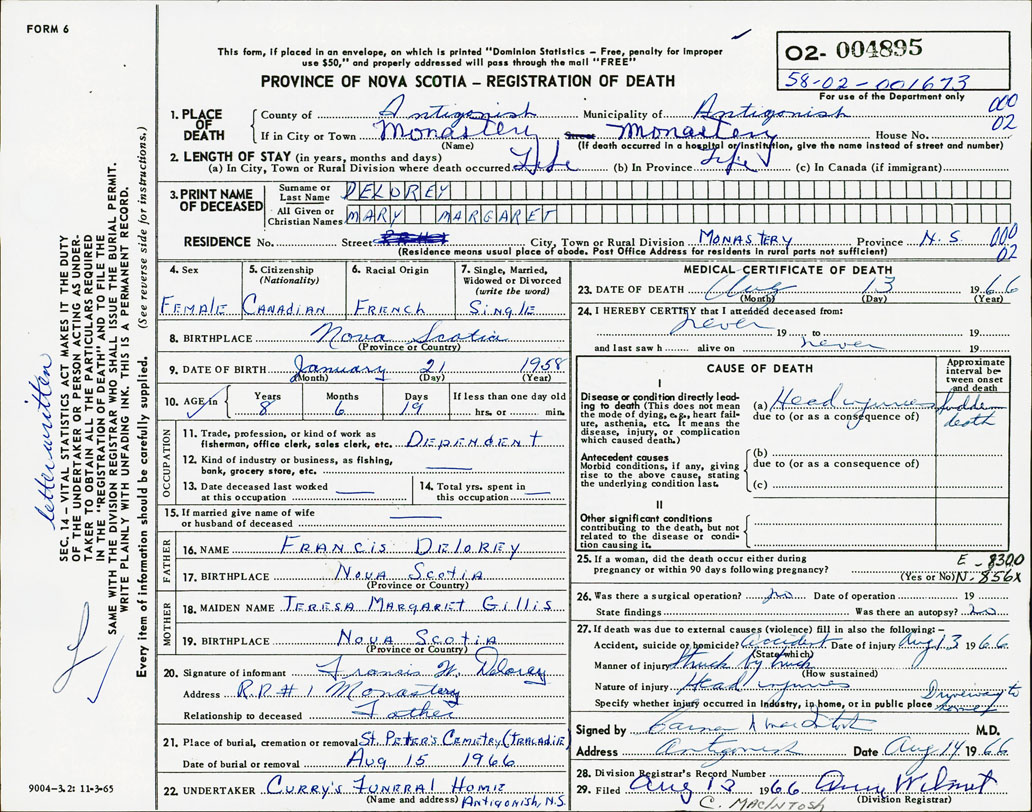 FORM 6
This form, if placed in an envelope, on which is printed "Dominion Statistics – Free, penalty for improper
use $50," and properly addressed will pass through the mail "FREE"
PROVINCE OF NOVA SCOTIA – REGISTRATION OF DEATH
02- 004895
58-02-001673
For use of the Department only
1. PLACE OF DEATH
County of Antigonish Municipality of Antigonish 000
If in City or Town Monastery Street Monastery House No. 02
(Name) (If death occurred in a hospital or institution, give the name instead of street and number)
2. LENGTH OF STAY (in years, months and days)
(a) In City, Town or Rural Division where death occurred Life (b) In Province Life (c) In Canada (if immigrant)
3. PRINT NAME OF DECEASED
Surname or Last Name DELOREY
All Given or Christian Names MARY MARGARET
RESIDENCE No. Street City, Town or Rural Division MONASTERY Province N.S. 000
(Residence means usual place of abode. Post Office Address for residents in rural parts not sufficient) 02
4. Sex FEMALE
5. Citizenship (Nationality) CANADIAN
6. Racial Origin FRENCH
7. Single, Married, Widowed or Divorced (write the word) SINGLE
8. BIRTHPLACE Nova Scotia
(Province or Country)
9. DATE OF BIRTH January 21 1958
(Month) (Day) (Year)
10. AGE in Years 8 Months 6 Days 19 If less than one day old hrs. or min.
OCCUPATION
11. Trade, profession, or kind of work as
fisherman, office clerk, sales clerk, etc. DEPENDENT
12. Kind of industry or business, as fishing,
bank, grocery store, etc.
13. Date deceased last worked
at this occupation
14. Total yrs. spent in
this occupation
15. If married give name of wife
or husband of deceased
FATHER
16. NAME FRANCIS DELOREY
17. BIRTHPLACE NOVA SCOTIA
(Province or Country)
MOTHER
18. MAIDEN NAME TERESA MARGARET GILLIS
19. BIRTHPLACE NOVA SCOTIA
(Province or Country)
20. Signature of informant Francis W. Delorey
Address R.R # 1 Monastery
Relationship to deceased Father
21. Place of burial, cremation or removal ST. PETER'S CEMETRY (TRACADIE)
Date of burial or removal AUG 15 1966
22. UNDERTAKER CURRY'S FUNERAL HOME
(Name and address) ANTIGONISH, N.S.
MEDICAL CERTIFICATE OF DEATH
23. DATE OF DEATH Aug 13 1966
(Month) (Day) (Year)
24. I HEREBY CERTIFY that I attended deceased from:
never 19 to 19
and last saw h alive on never 19
CAUSE OF DEATH
Approximate interval between onset and death
I
Disease or condition directly leading
to death (This does not mean
the mode of dying, e.g., heart failure,
asthenia, etc. It means the
disease, injury, or complication
which caused death.)
(a) Head injuries sudden death
due to (or as a consequence of)
Antecedent causes
Morbid conditions, if any, giving
rise to the above cause, stating
the underlying condition last.
(b)
due to (or as a consequence of)
(c)
II
Other significant conditions
contributing to the death, but not
related to the disease or condition
causing it.
25. If a woman, did the death occur either during
pregnancy or within 90 days following pregnancy? (Yes or No)
E - 8300
N - 856X
26. Was there a surgical operation? no Date of operation 19
State findings Was there an autopsy? no
27. If death was due to external causes (violence) fill in also the following:–
Accident, suicide or homicide? Accident Date of injury Aug 13 1966
(State which)
Manner of injury Struck by truck
(How sustained)
Nature of injury Head injuries
Specify whether injury occurred in industry, in home, or in public place Driveway to home
Signed by M.D.
Address Antigonish Date Aug 14 1966
28. Division Registrar's Record Number
29. Filed Aug 13 1966
(Division Registrar)
C. MACINTOSH
letter written
SEC. 14 – VITAL STATISTICS ACT MAKES IT THE DUTY
OF THE UNDERTAKER OR PERSON ACTING AS UNDERTAKER
TO OBTAIN ALL THE PARTICULARS REQUIRED
IN THE "REGISTRATION OF DEATH" AND TO FILE THE
SAME WITH THE DIVISION REGISTRAR WHO SHALL ISSUE THE BURIAL PERMIT.
WRITE PLAINLY WITH UNFADING INK. THIS IS A PERMANENT RECORD.
Every item of information should be carefully supplied. (See reverse side for instructions.)
9004-3.2: 11-3-65